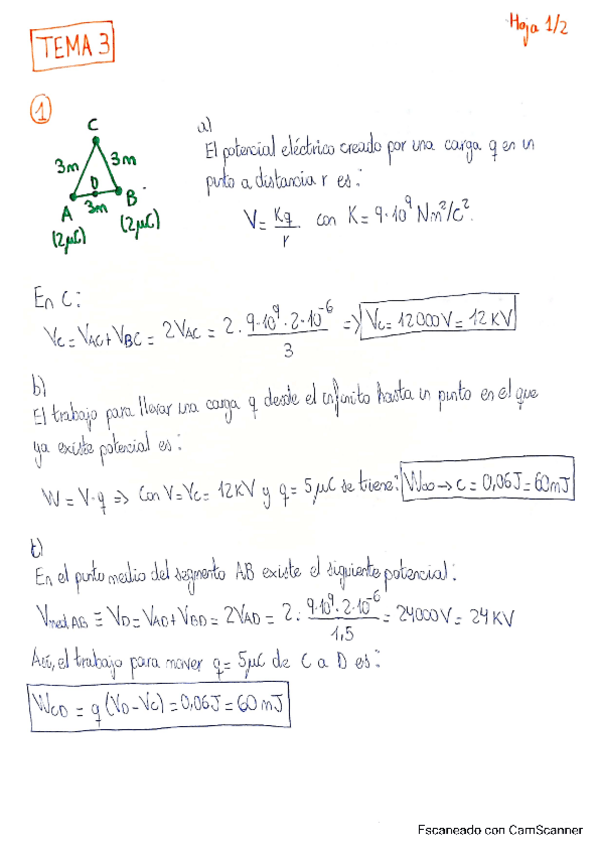 Hoja 1/2
TEMA 3
1
C
3m 3m
D
A 3m B
(2μC) (2μC)
a)
El potencial eléctrico creado por una carga q en un
punto a distancia r es:
V = Kq/r con K = 9·10⁹ Nm²/C².
En C:
Vc = VAC + VBC = 2VAC = 2 · 9·10⁹·2·10⁻⁶/3 => Vc = 12000V = 12KV
b)
El trabajo para llevar una carga q desde el infinito hasta un punto en el que
ya existe potencial es:
W = V·q => Con V = Vc = 12KV y q = 5μC se tiene: W∞→c = 0,06J = 60mJ
c)
En el punto medio del segmento AB existe el siguiente potencial:
Vmed AB ≡ VD = VAD + VBD = 2VAD = 2 · 9·10⁹·2·10⁻⁶/1,5 = 24000V = 24KV
Así, el trabajo para mover q = 5μC de C a D es:
WCD = q (VD - Vc) = 0,06J = 60mJ
Escaneado con CamScanner